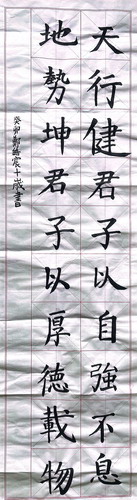 天行健君子以自強不息
地勢坤君子以厚德載物
癸卯鄭皓宸十歲書